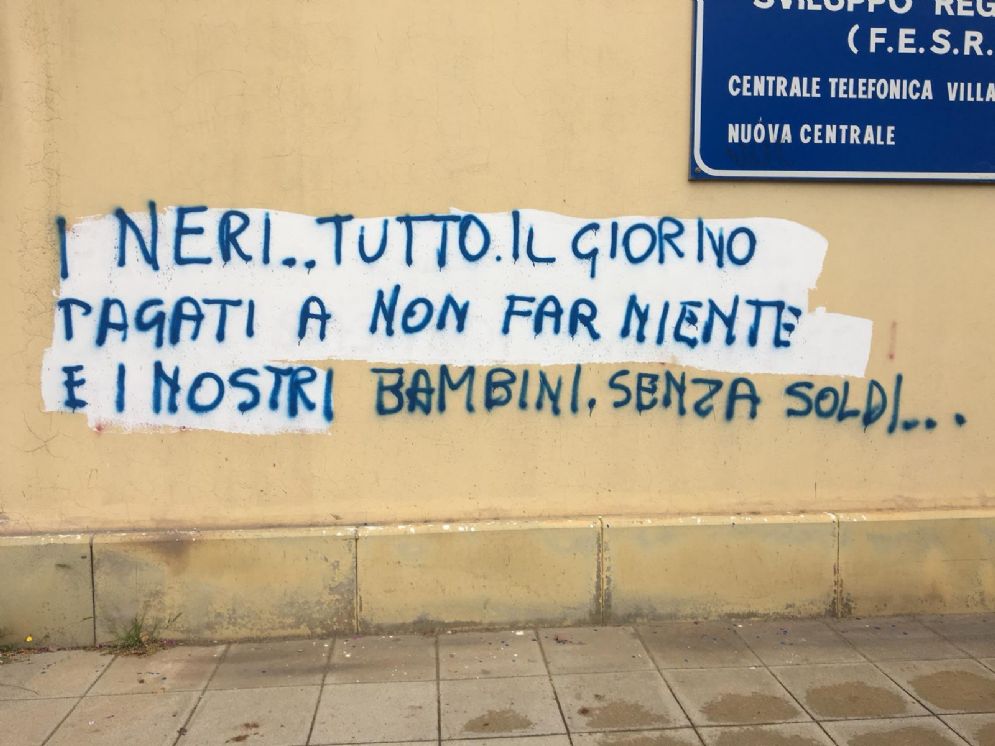 SVILUPPO REG
(F.E.S.R.
CENTRALE TELEFONICA VILLA
NUOVA CENTRALE
I NERI..TUTTO.IL GIORNO
PAGATI A NON FAR NIENTE
E I NOSTRI BAMBINI.SENZA SOLDI...